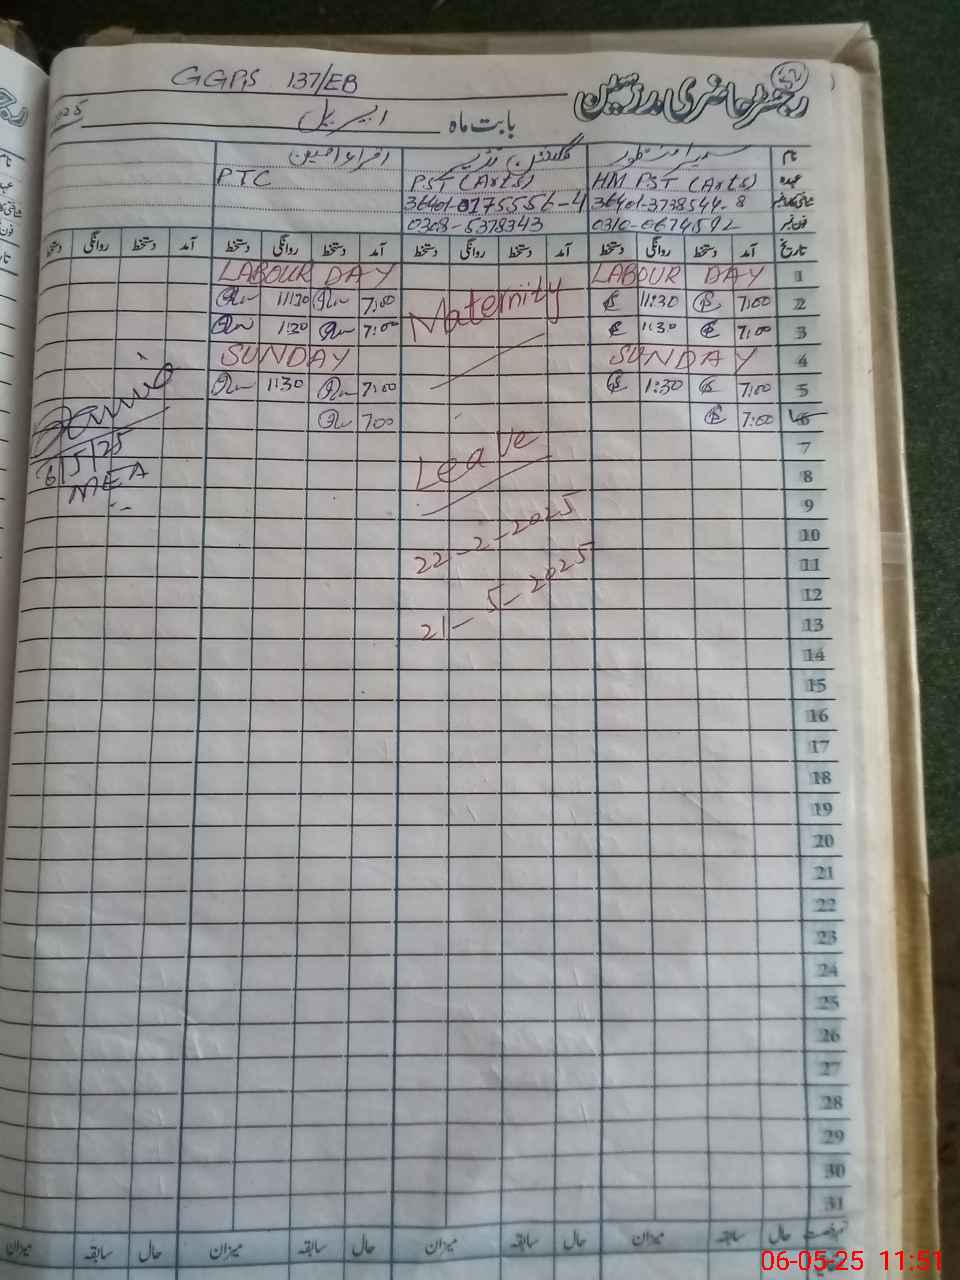 GGPS 137/EB
52
رجسٹر حاضری مدرسین
بابت ماہ اپریل
نام
عہدہ HM PST (Arts) PST (Arts) PTC
36401-3738544-8 36401-0175556-4
فون نمبر 0310-0674592 0308-5378343
تاریخ آمد دستخط روانگی دستخط آمد دستخط روانگی دستخط آمد دستخط روانگی دستخط آمد دستخط روانگی دستخط
1 LABOUR DAY LABOUR DAY
2 7:00 11:30 7:00 11:30
3 7:00 11:30 7:00 1:30
4 SUNDAY SUNDAY
5 7:00 1:30 7:00 1:30
6 7:00 7:00
Maternity
Leave
22-2-2025
21-5-2025
6/5/25
MEA
7
8
9
10
11
12
13
14
15
16
17
18
19
20
21
22
23
24
25
26
27
28
29
30
31
حال سابقہ میزان حال سابقہ میزان حال سابقہ میزان حال سابقہ میزان
06-05-25 11:51